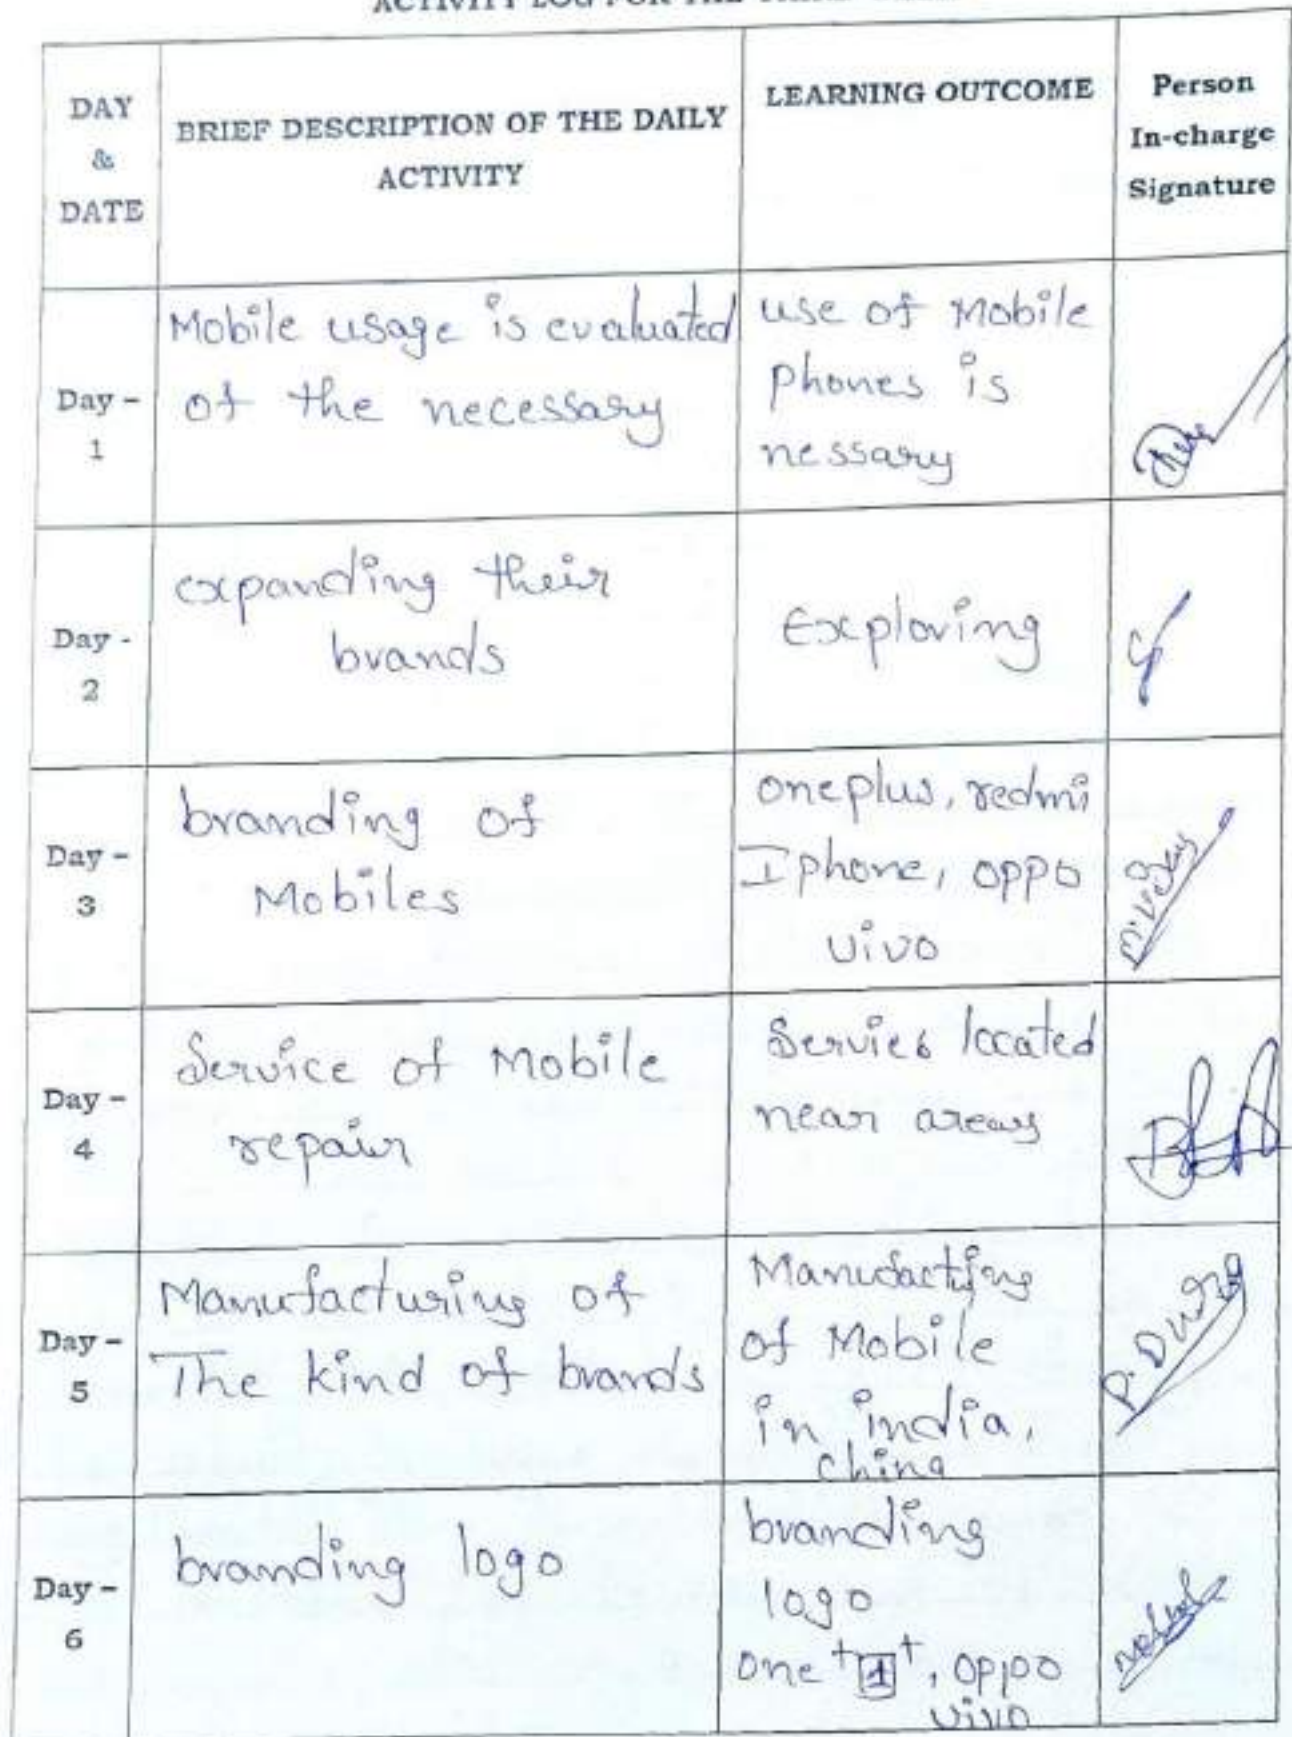 DAY
&
DATE
BRIEF DESCRIPTION OF THE DAILY
ACTIVITY
LEARNING OUTCOME
Person
In-charge
Signature
Day -
1
Mobile usage is evaluated
of the necessary
use of Mobile
phones is
nessary
Day -
2
expanding their
brands
Exploring
Day -
3
branding of
Mobiles
oneplus, redmi
Iphone, oppo
vivo
Day -
4
Service of Mobile
repair
Servies located
near areas
Day -
5
Manufacturing of
The kind of brands
of Mobile
in india,
china
P. Durga
Day -
6
branding logo
branding
logo
one + 1 +, oppo
vivo